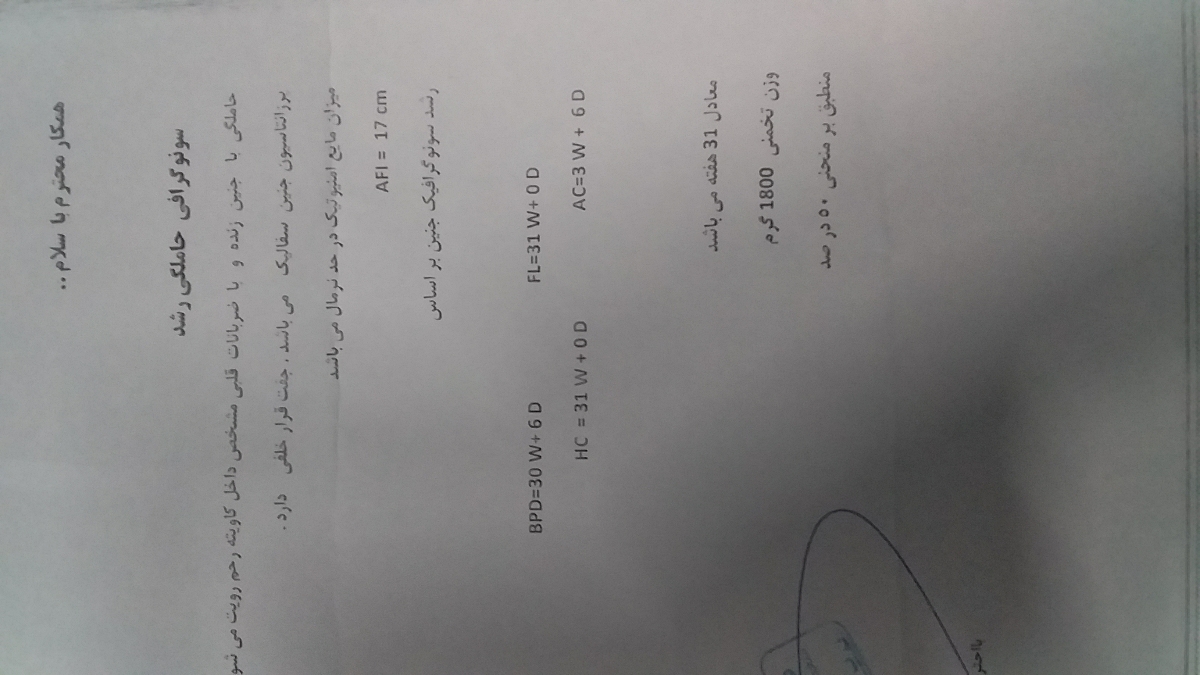 همکار محترم با سلام ..
سونوگرافی حاملگی رشد
حاملگی با جنین زنده و با ضربانات قلبی مشخص داخل کاویته رحم رویت می شو
پرزانتاسیون جنین سفالیک می باشد ، جفت قرار خلفی دارد .
میزان مایع امنیوتیک در حد نرمال می باشد
AFI = 17 cm
رشد سونوگرافیک جنین بر اساس
BPD=30 W+ 6 D FL=31 W+ 0 D
HC = 31 W + 0 D AC=3 W + 6 D
معادل 31 هفته می باشد
وزن تخمنی 1800 گرم
منطبق بر منحنی ۵۰ در صد
بااحتر